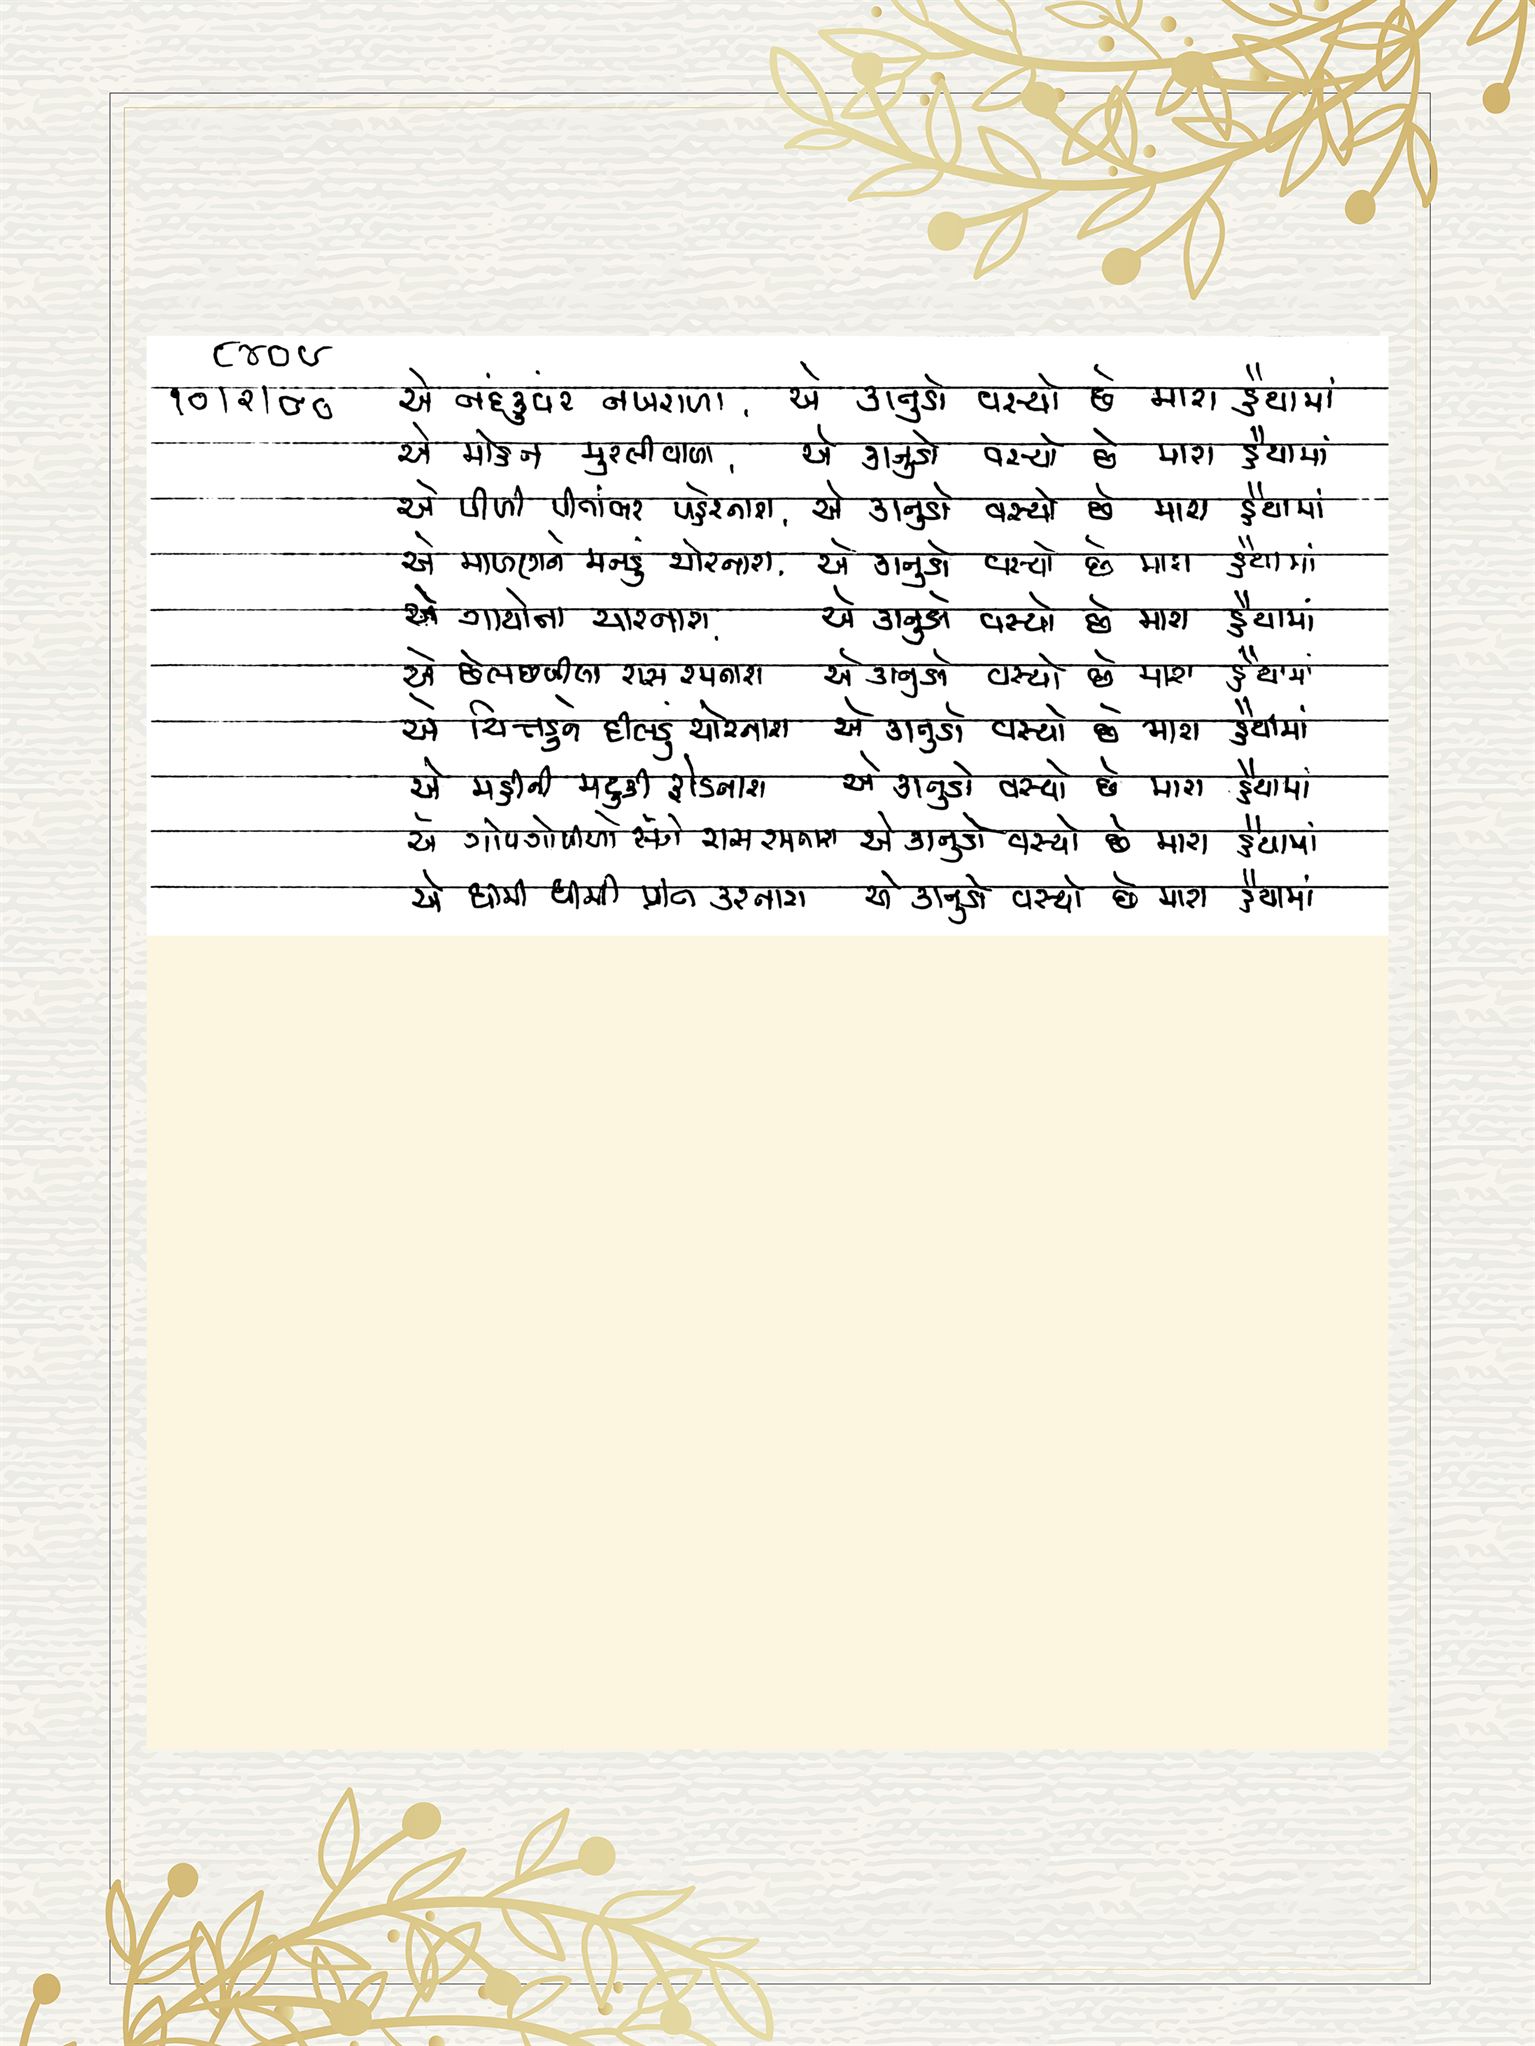 ૮૪૦૯
૧૦/૨/૯૦ એ નંદકુંવર નખરાળા, એ કાનુડો વસ્યો છે મારા હૈયામાં
એ મોહન મુરલીવાળા, એ કાનુડો વસ્યો છે મારા હૈયામાં
એ પીળી પીતાંબર પહેરનારા, એ કાનુડો વસ્યો છે મારા હૈયામાં
એ માખણને મનડું ચોરનારા, એ કાનુડો વસ્યો છે મારા હૈયામાં
એ ગાયોના ચારનારા, એ કાનુડો વસ્યો છે મારા હૈયામાં
એ છેલછબીલા રાસ રમનારા એ કાનુડો વસ્યો છે મારા હૈયામાં
એ ચિત્તડુને દીલડું ચોરનારા એ કાનુડો વસ્યો છે મારા હૈયામાં
એ મહીની મટુકી ફોડનારા એ કાનુડો વસ્યો છે મારા હૈયામાં
એ ગોપગોપીઓ સંગે રાસ રમનારા એ કાનુડો વસ્યો છે મારા હૈયામાં
એ ધીમી ધીમી પ્રીત કરનારા એ કાનુડો વસ્યો છે મારા હૈયામાં